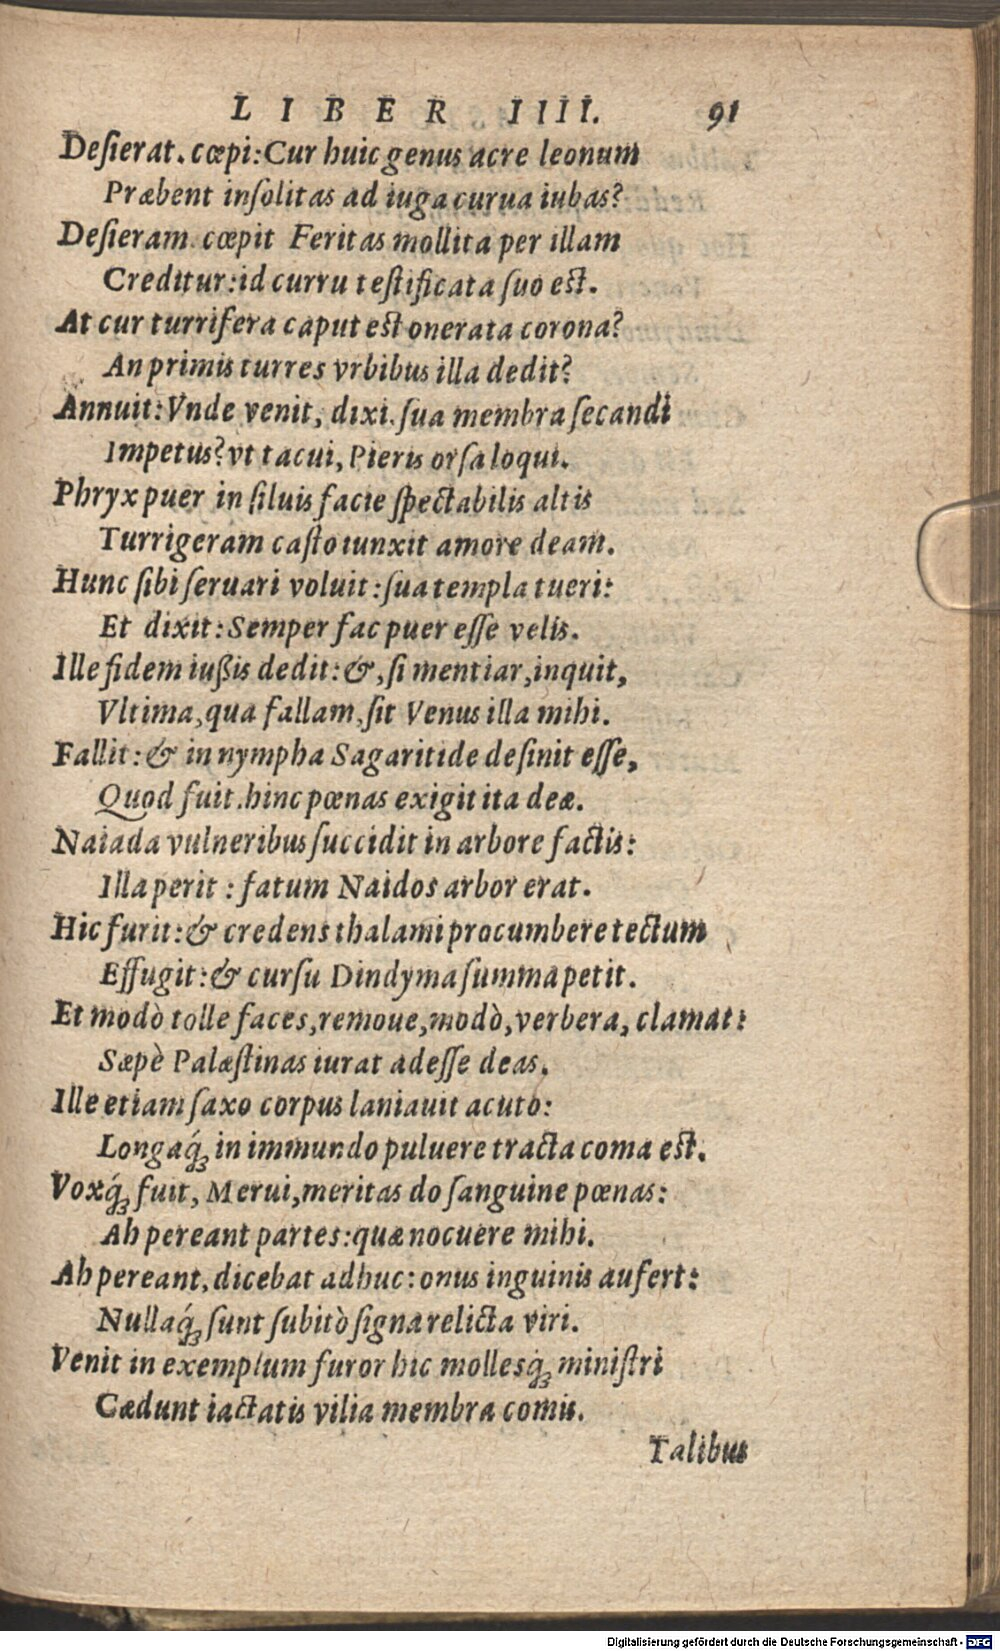 LIBER IIII. 91
Deſierat. cœpi: Cur huic genus acre leonum
Præbent inſolitas ad iuga curua iubas?
Deſieram. cœpit Feritas mollita per illam
Creditur: id curru teſtificata ſuo eſt.
At cur turrifera caput eſt onerata corona?
An primis turres vrbibus illa dedit?
Annuit: Vnde venit, dixi. ſua membra ſecandi
Impetus? vt tacui, Pieris orſa loqui.
Phryx puer in ſiluis facie ſpectabilis altis
Turrigeram caſto iunxit amore deam.
Hunc ſibi ſeruari voluit: ſua templa tueri:
Et dixit: Semper fac puer eſſe velis.
Ille fidem iuſsis dedit: &, ſi mentiar, inquit,
Vltima, qua fallam, ſit Venus illa mihi.
Fallit: & in nympha Sagaritide deſinit eſſe,
Quod fuit. hinc pœnas exigit ita deæ.
Naiada vulneribus ſuccidit in arbore factis:
Illa perit: fatum Naidos arbor erat.
Hic furit: & credens thalami procumbere tectum
Effugit: & curſu Dindyma ſumma petit.
Et modò tolle faces, remoue, modò, verbera, clamat:
Sæpè Palæſtinas iurat adeſſe deas.
Ille etiam ſaxo corpus laniauit acuto:
Longaq́; in immundo puluere tracta coma eſt.
Voxq́; fuit, Merui, meritas do ſanguine pœnas:
Ah pereant partes: quæ nocuere mihi.
Ah pereant, dicebat adhuc: onus inguinis aufert:
Nullaq́; ſunt ſubitò ſigna relicta viri.
Venit in exemplum furor hic mollesq́; miniſtri
Cædunt iactatis vilia membra comis.
Talibus
Digitalisierung gefördert durch die Deutsche Forschungsgemeinschaft - DFG